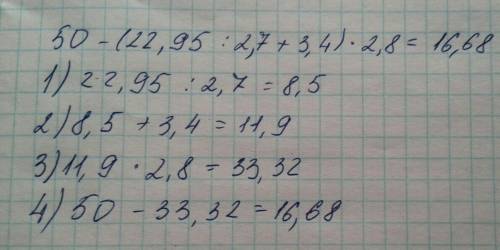 50 - (22,95 : 2,7 + 3,4) · 2,8 = 16,68
1) 22,95 : 2,7 = 8,5
2) 8,5 + 3,4 = 11,9
3) 11,9 · 2,8 = 33,32
4) 50 - 33,32 = 16,68